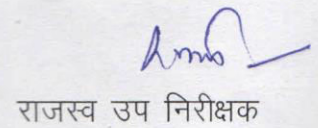 राजस्व उप निरीक्षक